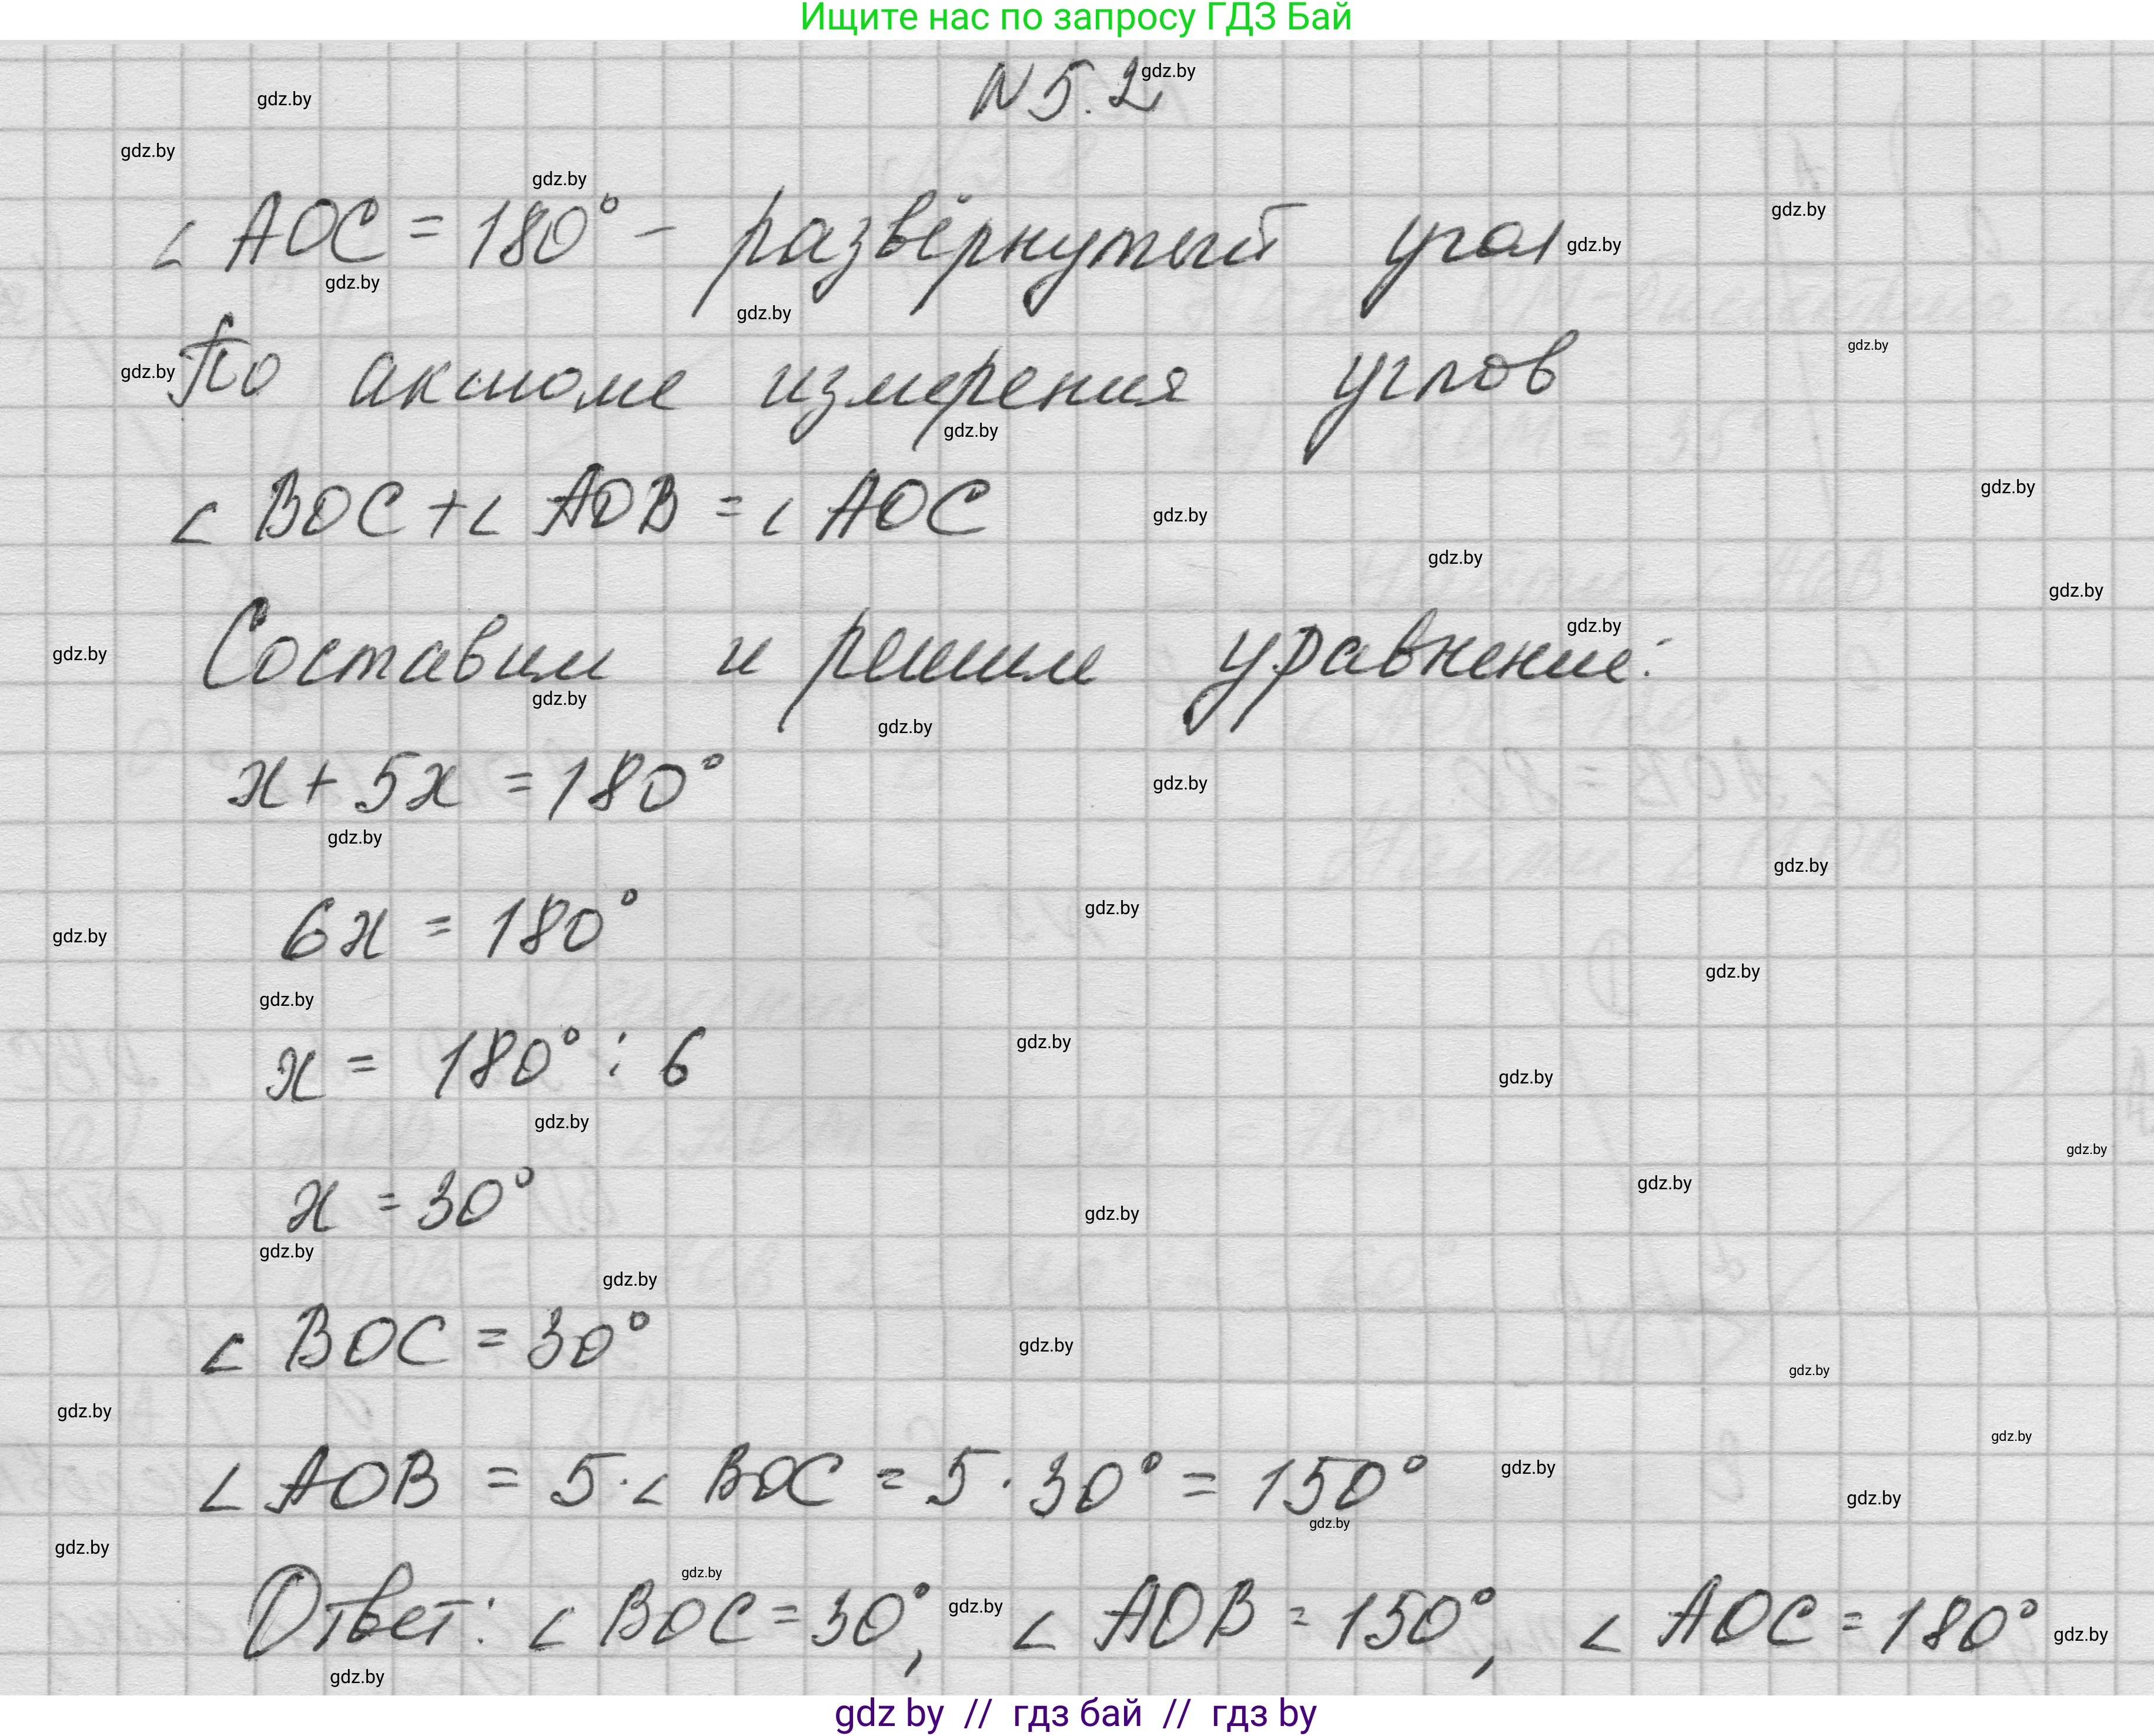 Ищите нас по запросу ГДЗ Бай
N 5.2
∠ AOC = 180° - развёрнутый угол
По аксиоме измерения углов
∠ BOC + ∠ AOB = ∠ AOC
Составим и решим уравнение:
x + 5x = 180°
6x = 180°
x = 180° : 6
x = 30°
∠ BOC = 30°
∠ AOB = 5 · ∠ BOC = 5 · 30° = 150°
Ответ: ∠ BOC = 30°, ∠ AOB = 150°, ∠ AOC = 180°
gdz by // гдз бай // гдз by